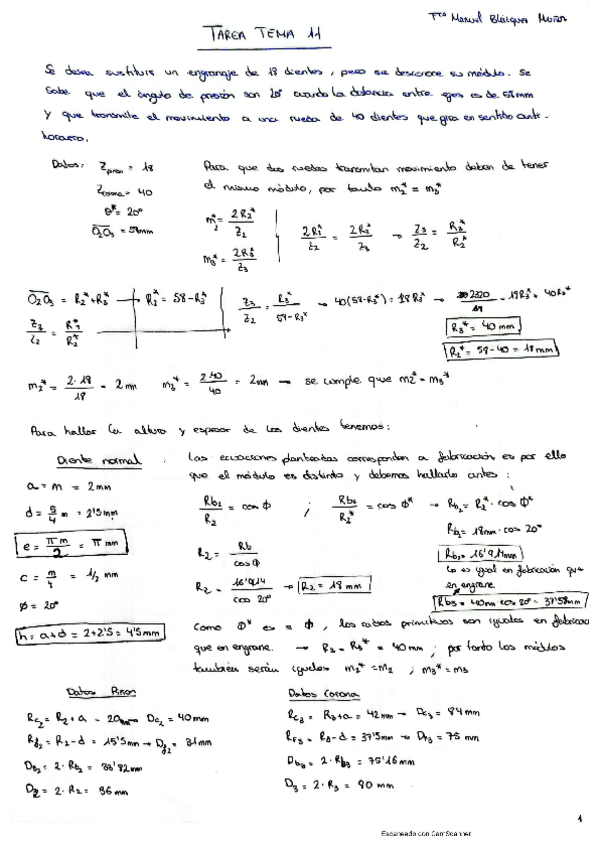 Fco Manuel Blázquez Muñoz
TAREA TEMA 11
Se desea sustituir un engranaje de 18 dientes, pero se desconoce su módulo. Se
sabe que el ángulo de presión son 20º cuando la distancia entre ejes es de 58mm
y que transmite el movimiento a una rueda de 40 dientes que gira en sentido anti-
horario.
Datos: Zpiñon = 18
Zcorona = 40
θ* = 20º
O2O3 = 58mm
Para que dos ruedas transmitan movimiento deben de tener
el mismo módulo, por tanto m2* = m3*
m2* = 2R2*/Z2
m3* = 2R3*/Z3
2R2*/Z2 = 2R3*/Z3 → Z3/Z2 = R3*/R2*
O2O3 = R2* + R3* → R2* = 58 - R3*
Z3/Z2 = R3*/R2*
Z3/Z2 = R3*/58-R3* → 40(58-R3*) = 18R3* → 2320 = 18R3* + 40R3*
R3* = 40 mm
R2* = 58 - 40 = 18 mm
m2* = 2·18/18 = 2 mm m3* = 2·40/40 = 2mm → se cumple que m2* = m3*
Para hallar la altura y espesor de los dientes tenemos:
Diente normal
a = m = 2mm
d = 5/4 m = 2'5mm
e = πm/2 = π mm
c = m/4 = 1/2 mm
φ = 20º
h = a+d = 2+2'5 = 4'5mm
Las ecuaciones planteadas corresponden a fabricación es por ello
que el módulo es distinto y debemos hallarlo antes:
Rb2/R2 = cos φ ; Rb2/R2* = cos φ* → Rb2 = R2* · cos φ*
Rb2 = 18mm · cos 20º
R2 = Rb/cos φ
Rb2 = 16'914mm
Lo es igual en fabricación que
en engrane
R2 = 16'914/cos 20º → R2 = 18 mm
Rb3 = 40mm cos 20º = 37'58mm
Como φ* es = φ, los radios primitivos son iguales en fabricación
que en engrane. → R3 = R3* = 40mm; por tanto los módulos
también serán iguales m2* = m2 ; m3* = m3
Datos Piñon
Rc2 = R2 + a = 20mm → Dc2 = 40mm
Rf2 = R2 - d = 15'5mm → Df2 = 31mm
Db2 = 2 · Rb2 = 33'82mm
D2 = 2 · R2 = 36mm
Datos Corona
Rc3 = R3+a = 42mm → Dc3 = 84mm
RF3 = R3-d = 37'5mm → DF3 = 75 mm
Db3 = 2 · Rb3 = 75'16 mm
D3 = 2 · R3 = 80 mm
1
Escaneado con CamScanner